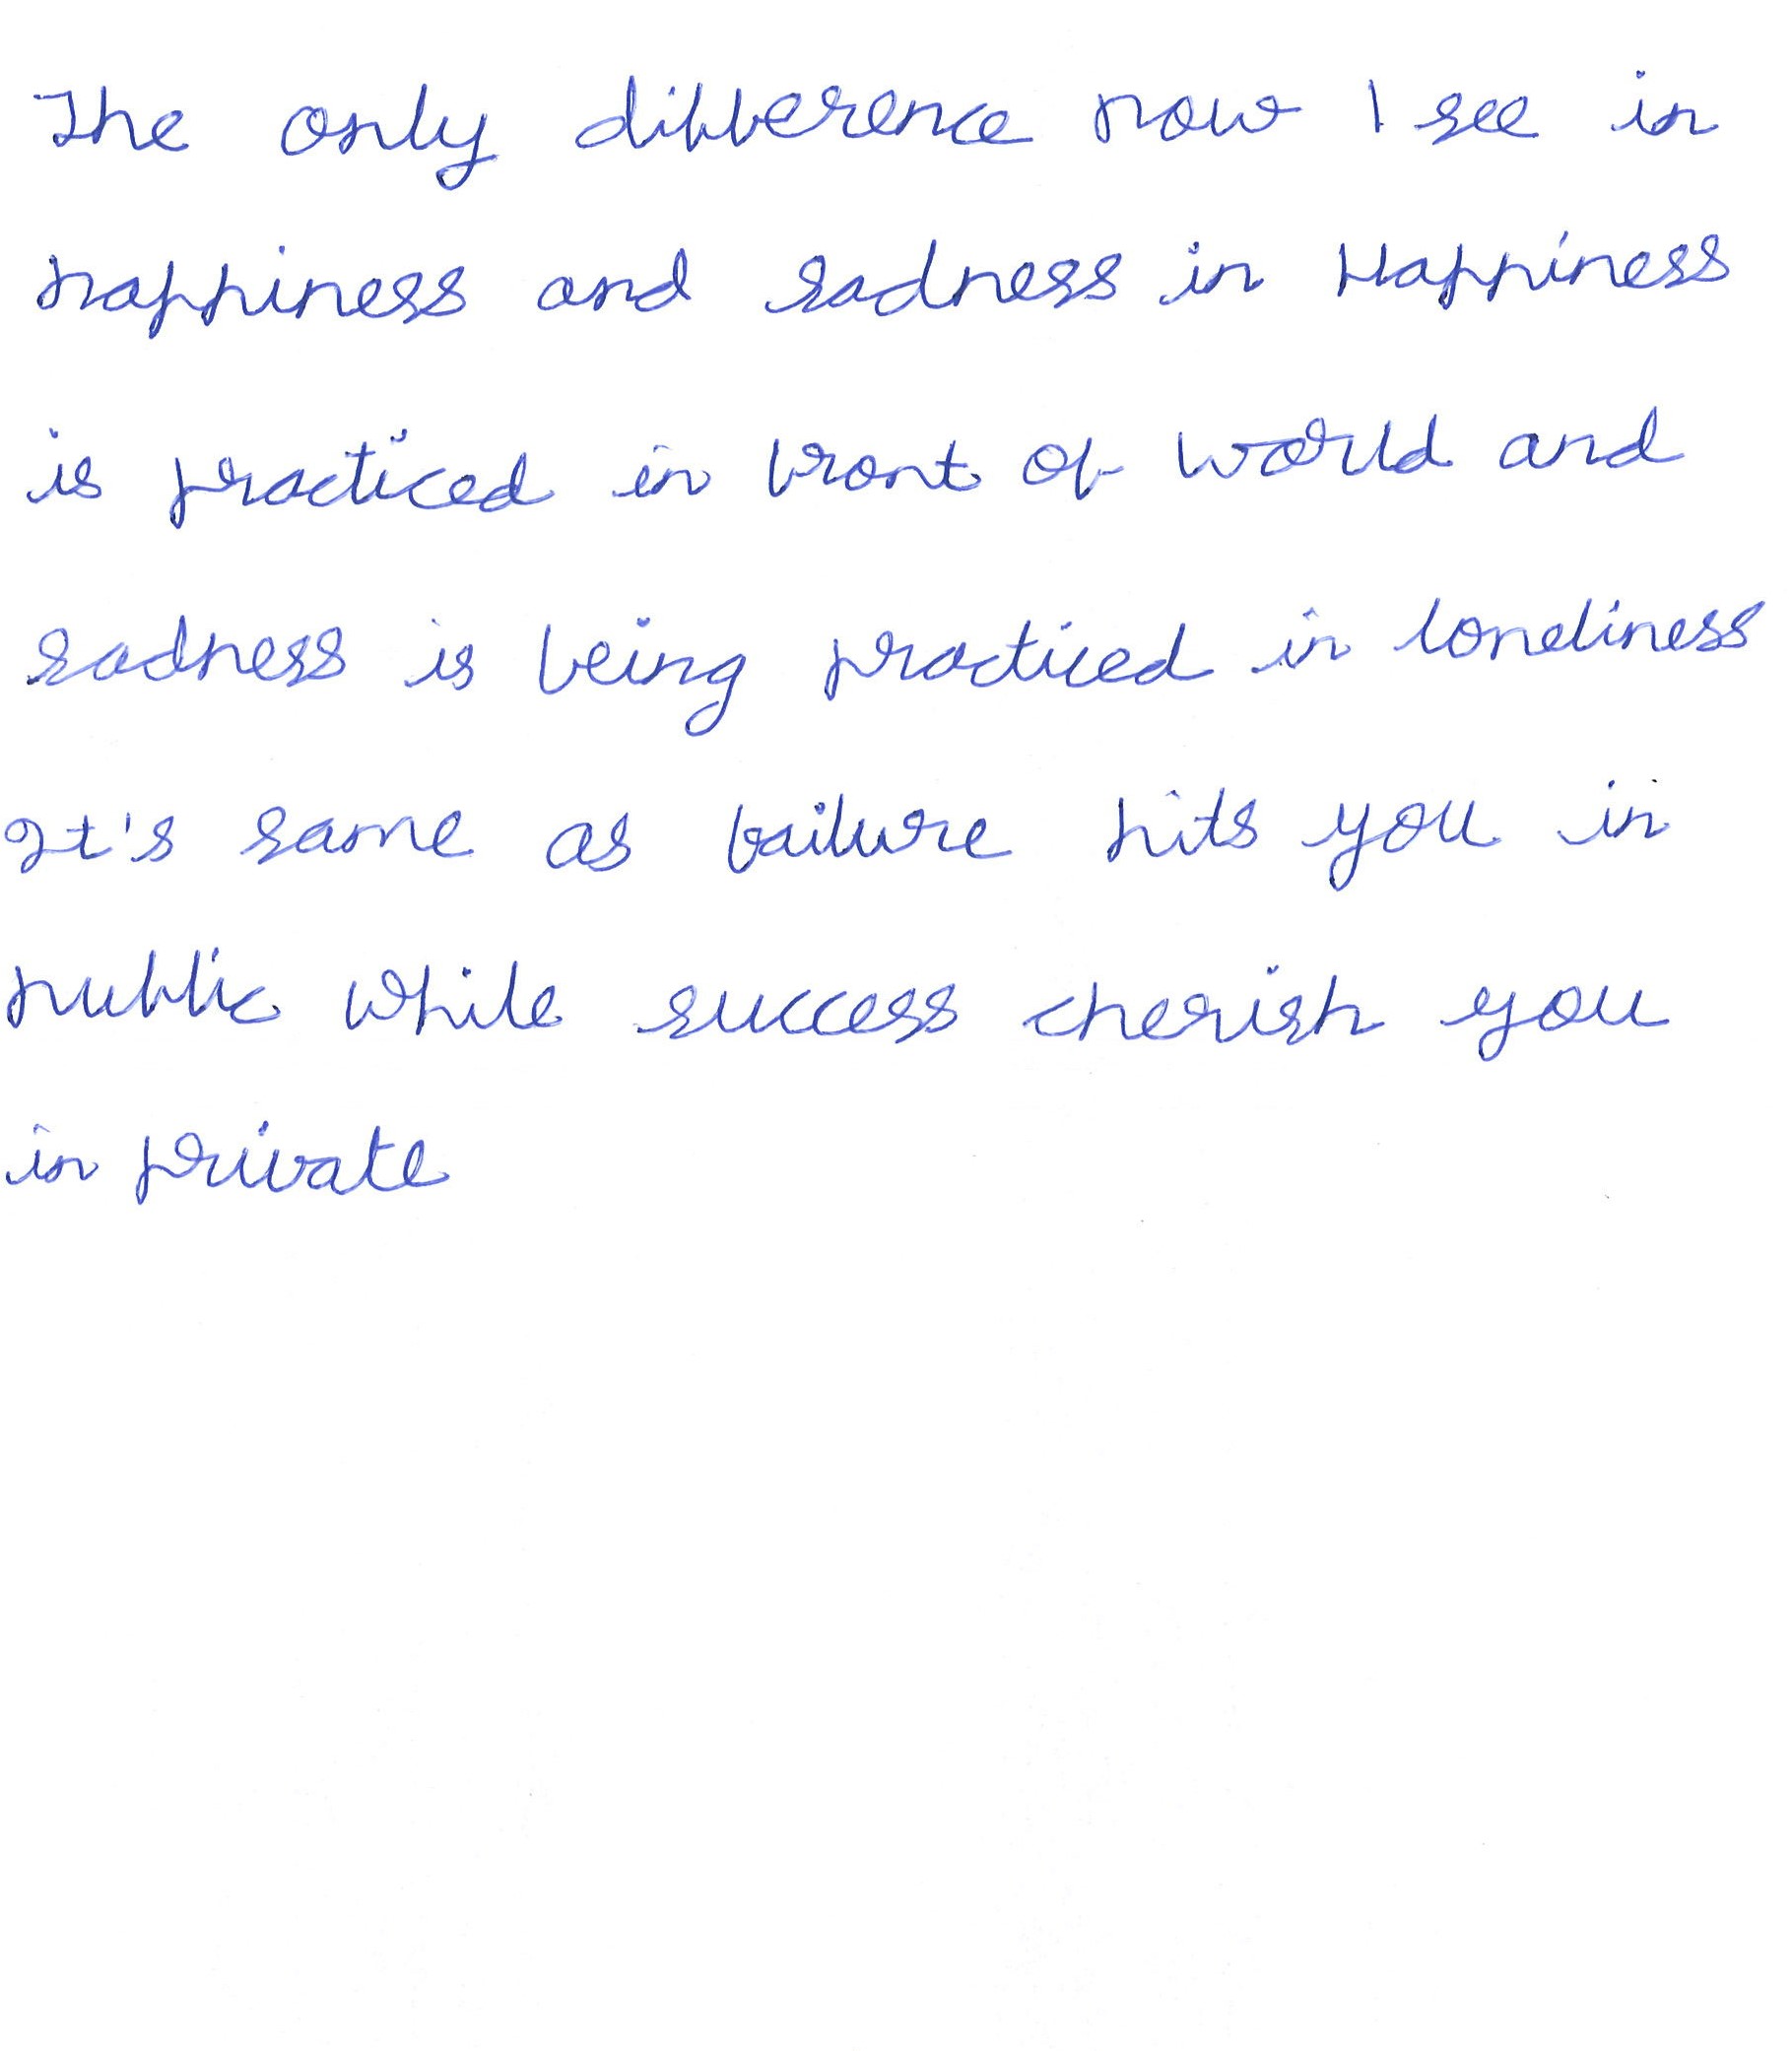 The only difference now I see in
happiness and sadness in Happiness
is practiced in front of world and
sadness is being practiced in loneliness
It's same as failure hits you in
public while success cherish you
in private